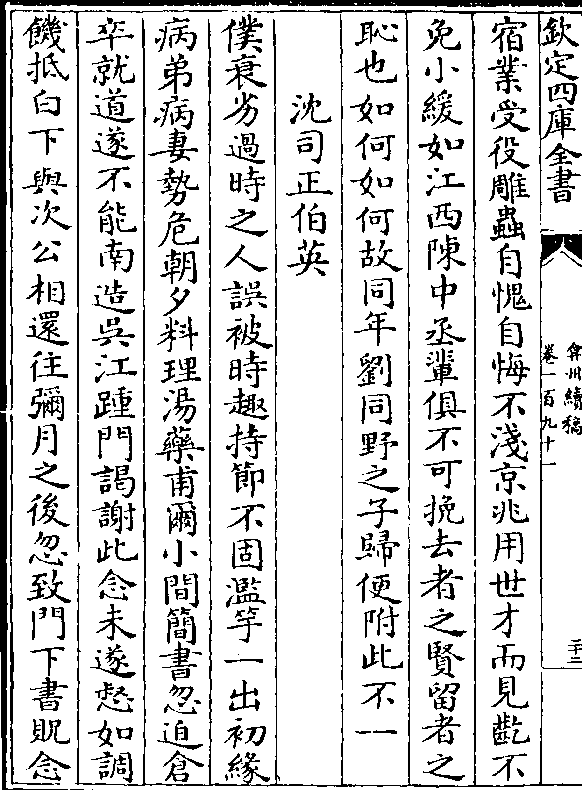 欽定四庫全書
弇州續稿
卷一百九十一
二十三
宿業受役雕蟲自愧自悔不淺京兆用世才而見齕不
免小緩如江西陳中丞輩俱不可挽去者之賢留者之
恥也如何如何故同年劉同野之子歸便附此不一
沈司正伯英
僕衰劣過時之人誤被時趣持節不固濫竽一出初緣
病弟病妻勢危朝夕料理湯藥甫爾小間簡書忽迫倉
卒就道遂不能南造吳江踵門謁謝此念未遂惄如調
饑抵白下與次公相還往彌月之後忽致門下書貺念